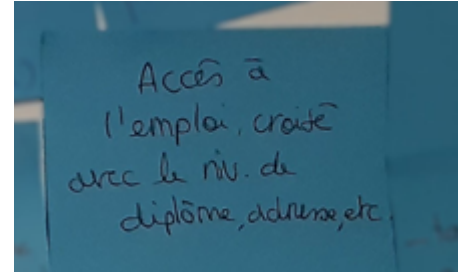 Accès à
l'emploi, croisé
avec le niv. de
diplôme, adresse, etc.